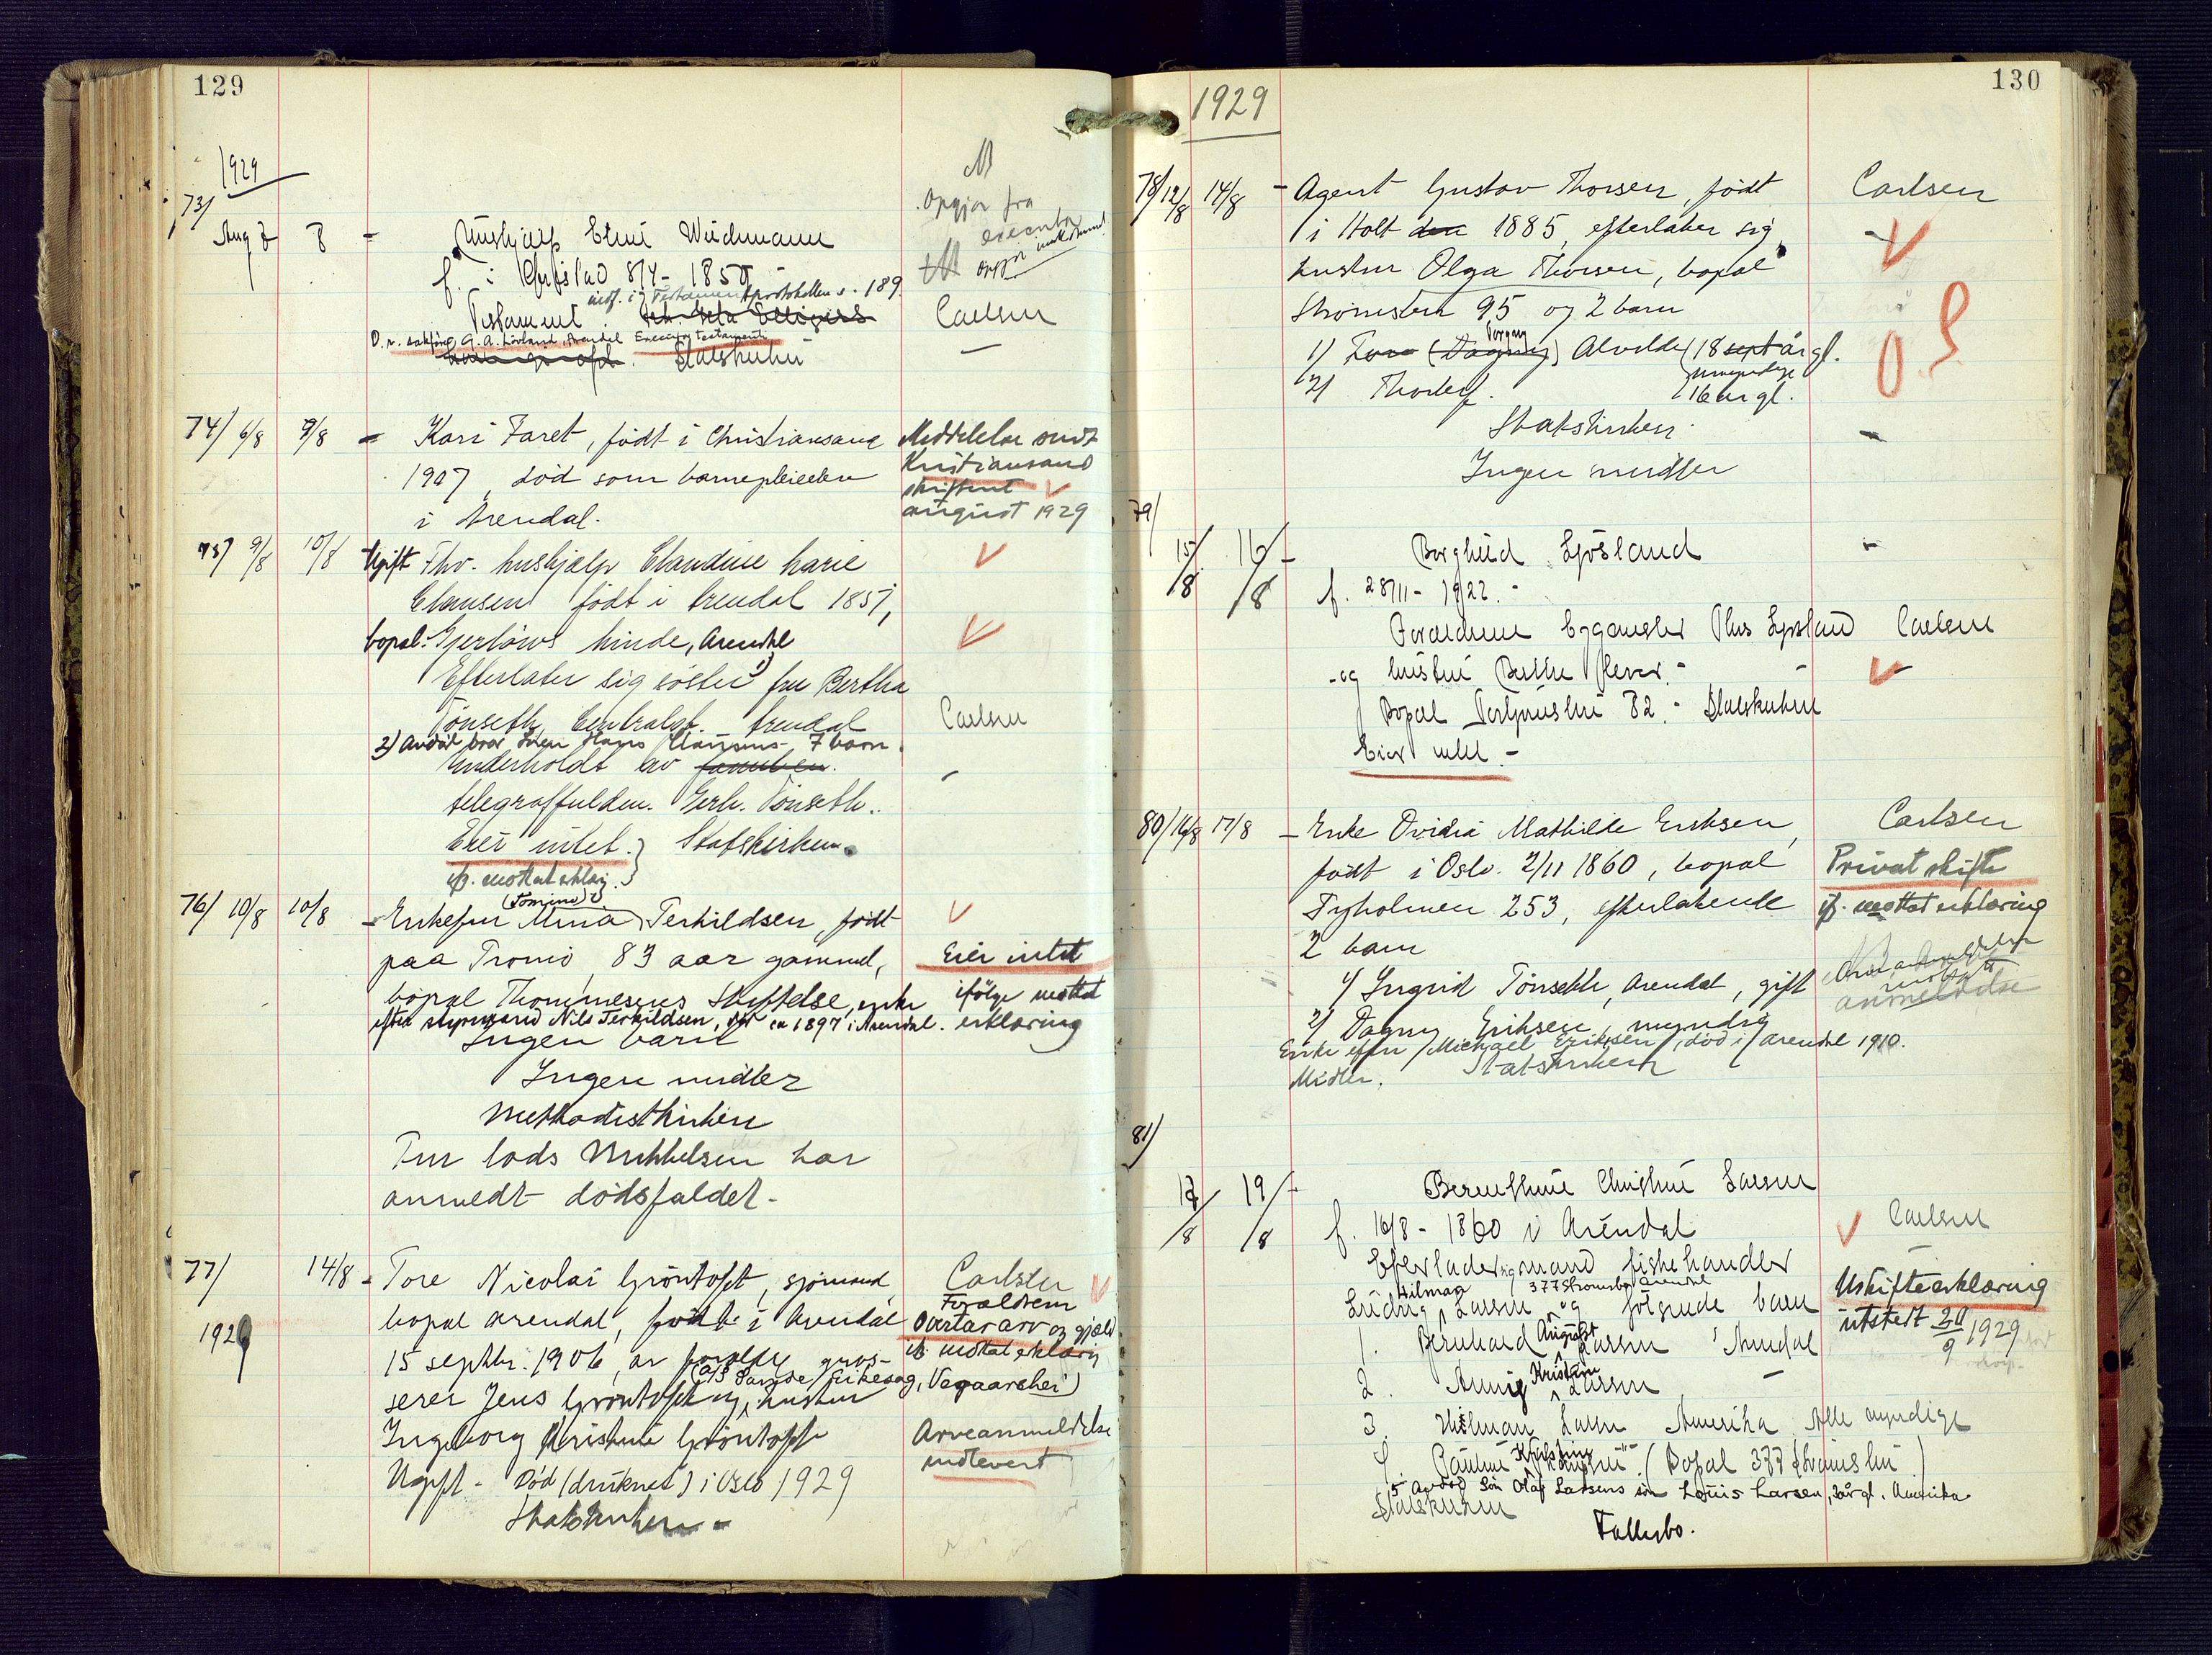 129
1929
73/
Aug 7 8 - Hushjælp Eline Wiedemann
f. i Grefstad 8/4 - 1850
indf. i Testamentprotokollen s. 189
Testament.
O.r. sakfører G. A. Lövland, Arendal Executor testamenti
Statskirken
M
Opgjør fra
executor
opgjør
Carlsen
74/ 6/8 9/8 - Kari Faret, født i Christiansand
1907, død som barnepleierske
i Arendal.
Meddelelse sendt
Kristiansand
skifteret
august 1929
75/ 9/8 10/8 Ugift Fhv. hushjælp Claudine Marie
Clausen født i Arendal 1857,
bopal: Gjerløws Minde, Arendal
Efterlater sig søster 1) fru Bertha
Tönseth, Arendal
2) Avdød bror Hans Clausens 7 barn.
Underholdt av familien.
Gerh. Tönseth.
Eier intet. Statskirken.
if. mottat erklæring.
Carlsen
76/ 10/8 10/8 - Enkefru Mina (Tomine) Terkildsen, født
paa Tromö, 83 aar gammel,
bopal Thommesens Stiftelse, enke
efter Nils Terkildsen, død ca 1897 i Arendal.
Ingen barn
Ingen midler
Methodistkirken
Fru lods Mikkelsen har
anmeldt dødsfaldet -
Eier intet
ifölge mottat
erklæring
77/ 14/8 - Tore Nicolai Gröntoft, sjømand
1929 bopal Arendal, født i Arendal
15 septbr. 1906, av foreldre gros-
(a/S Songe / Eikesag, Vegaarshei)
serer Jens Gröntoft og hustru
Ingeborg Kristine Gröntoft
Ugift - Død (druknet) i Oslo 1929
Statskirken -
Carlsen
Forældrene
Overtar arv og gjæld
if. mottat erklæring
Arveanmeldelse
indlevert
130
1929
78/ 12/8 14/8 - Agent Gustav Thorsen, født
i Holt den 1885, efterlater sig
hustru Olga Thorsen, bopal
Strömsbu 95 og 2 barn
1) Tora (Dagny) Alvilde 18 sept år gl.
umyndige
2) Thorleif. 16 år gl.
Statskirken
Ingen midler
Carlsen
79/
15/8 16/8 - Borghild Ljösland
f. 28/11 - 1922. -
Forældrene
og hustru lever. -
Bopal 82. - Statskirken
Eier intet. -
Carlsen
80/ 16/8 17/8 - Enke Ovidia Mathilde Eriksen,
født i Oslo. 2/11 1860, bopal
Tyholmen 253, efterlatende
2 barn
1/ Ingrid Tönseth, Arendal, gift
2/ Dagny Eriksen, myndig
Enke efter Michael Eriksen, død i Arendal 1910.
Midler. Statskirken
Carlsen
Privat skifte
if. mottat erklæring
anmeldelse
81/
17/8 19/8 - Bernthine Christine Larsen
f. 16/8 - 1860 i Arendal
Efterlader sig mand fiskehandler
Hilmar 377 Strömsbo, Arendal
Ludvig Larsen og følgende barn
1. Bernhard August Larsen, Arendal
2. Anny Kristine Larsen -
3. Hilmar Larsen Amerika. Alle myndige
4. Pauline Kristine (Bopal 377 Strömsbu)
5. Avdød Sön Olaf Larsens sön Louis Larsen, 3 år gl. Amerika
Statskirken
Fællesbo.
Carlsen
Uskifteerklæring
utstedt 20/9 1929